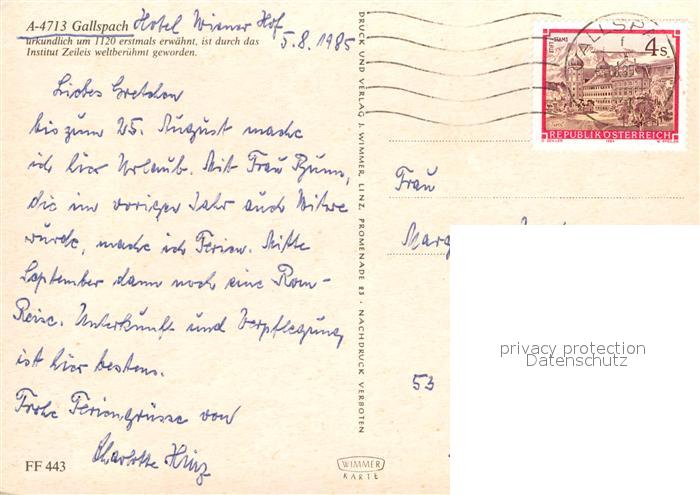 A-4713 Gallspach Hotel Wiener Hof
5.8.1985
urkundlich um 1120 erstmals erwähnt, ist durch das
Institut Zeileis weltberühmt geworden.
Liebes Gretchen
bis zum 25. August mache
ich hier Urlaub. Mit Frau
die im vorigen Jahr auch Witwe
wurde, mache ich Ferien. Mitte
September dann noch eine Rom-
Reise. Unterkunft und Verpflegung
ist hier bestens.
Frohe Feriengrüsse von
Charlotte Hinz
FF 443
DRUCK UND VERLAG J. WIMMER, LINZ, PROMENADE 23 · NACHDRUCK VERBOTEN
WIMMER
KARTE
GALLSPA
STIFT STAMS
4s
REPUBLIK ÖSTERREICH
1984
Frau
Marg
53
privacy protection
Datenschutz